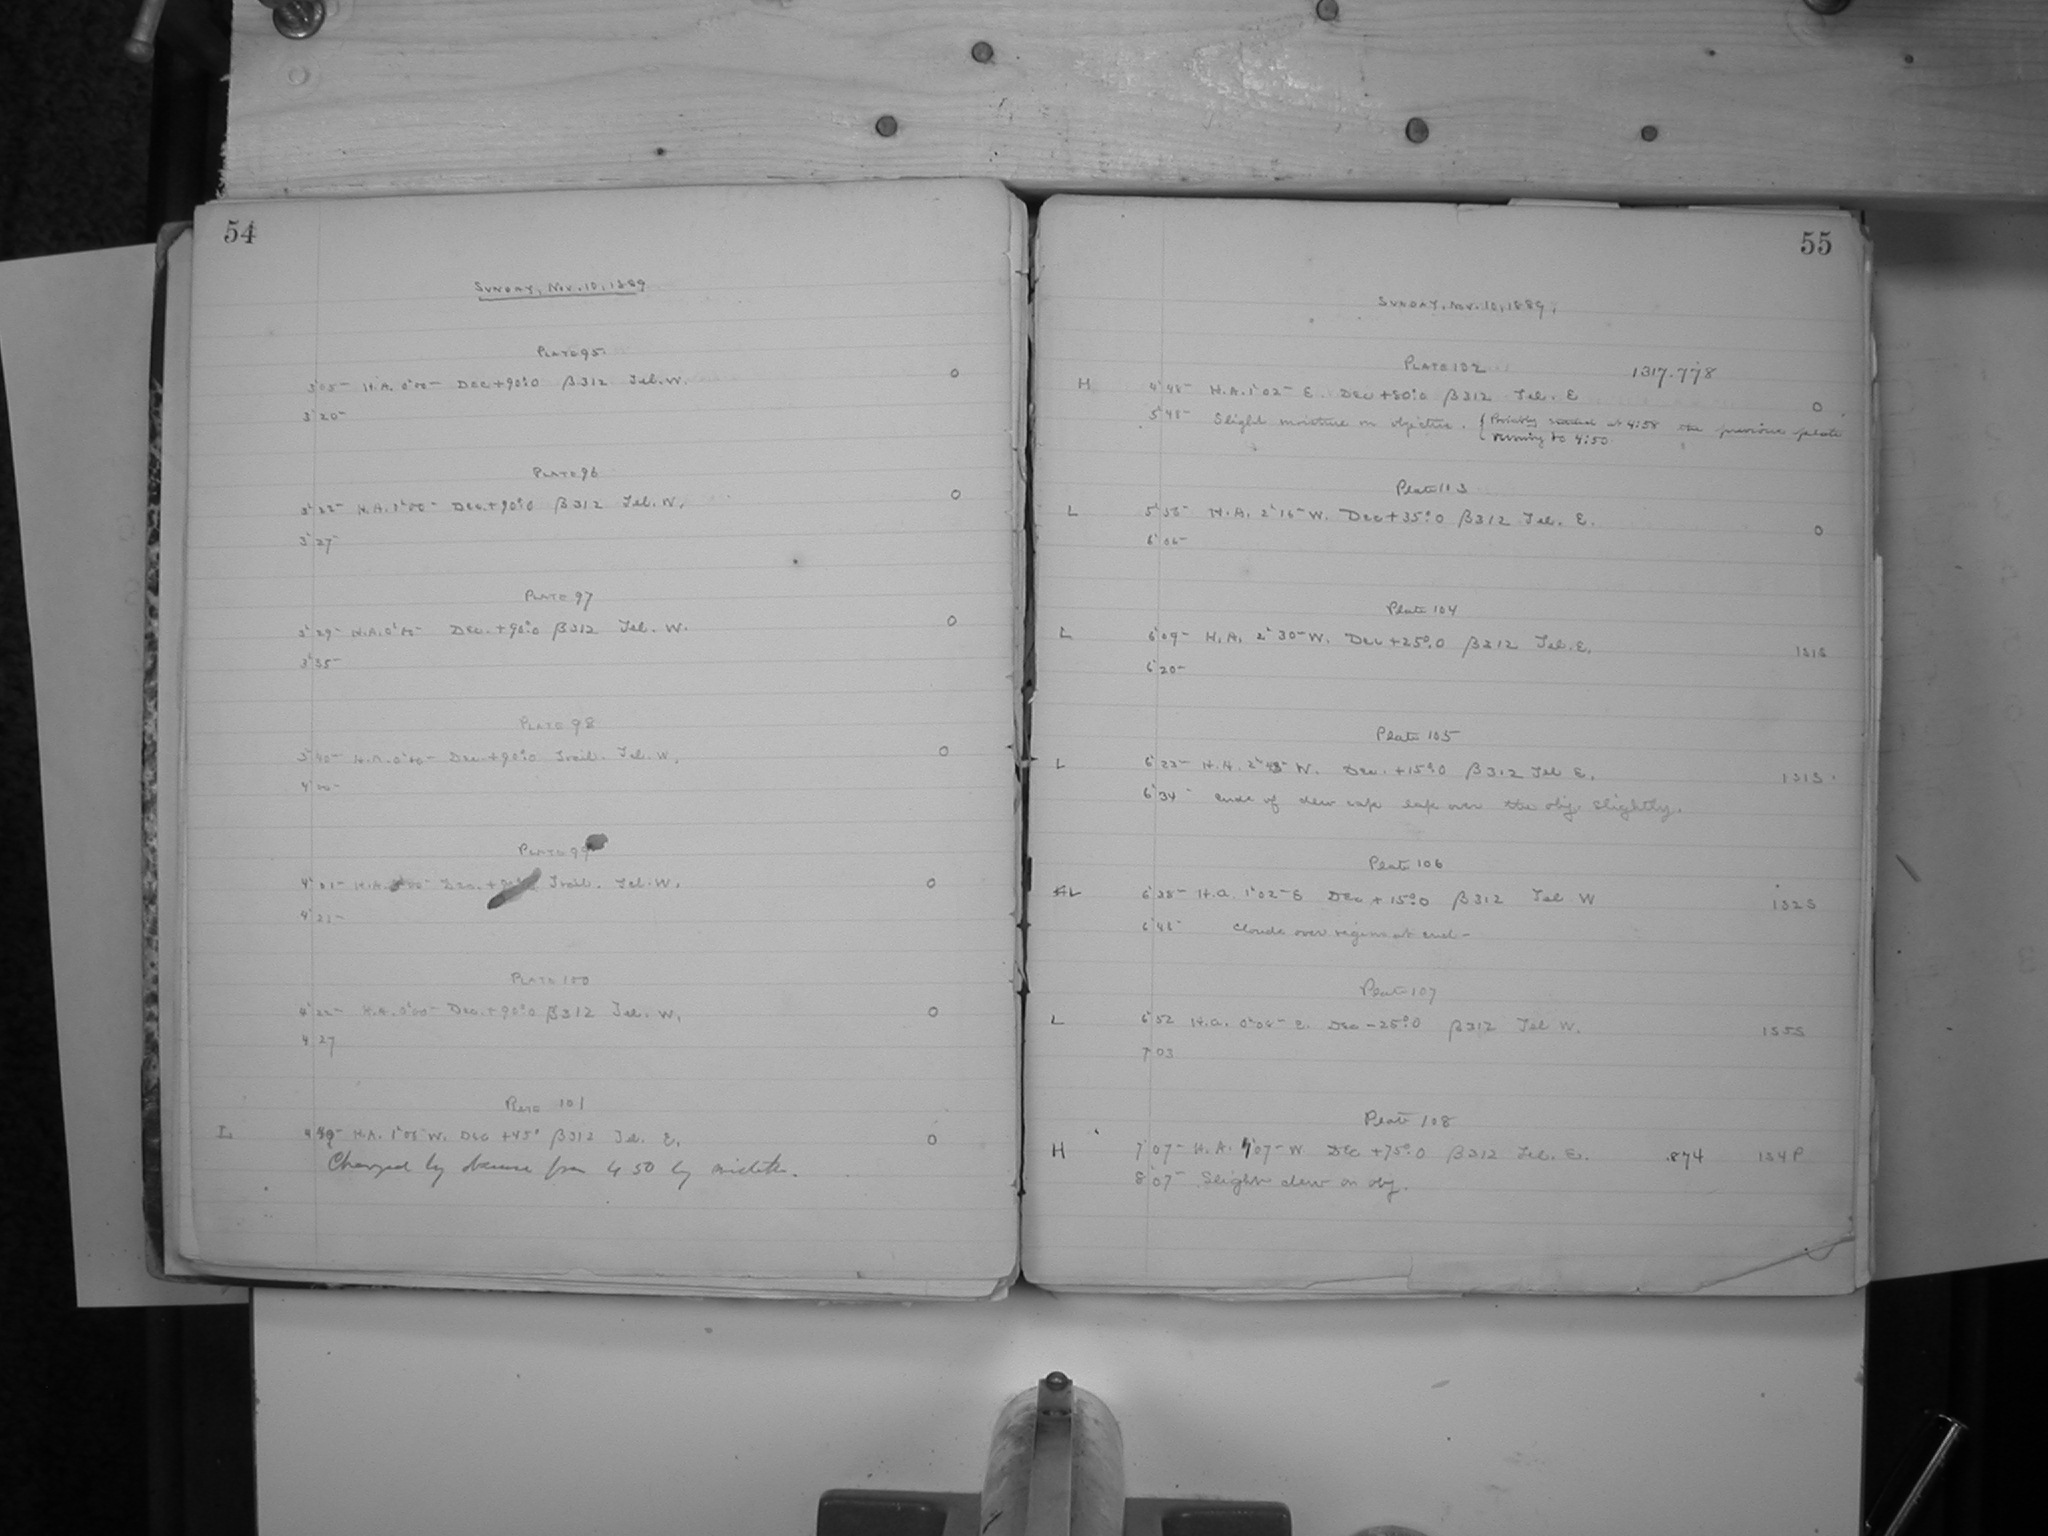 54
SUNDAY, NOV. 10, 1889
PLATE 95
3 05 H.A. 0 00 Dec +90°.0 β312 Tel. W. 0
3 20
PLATE 96
H.A. Dec. +90°.0 β312 Tel. W. 0
3 27
PLATE 97
3 29 H.A. 0 Dec. +90°.0 β312 Tel. W. 0
3 35
PLATE 98
3 40 H.A. 0 Dec. +90°.0 Trail. Tel. W. 0
4 00
PLATE 99
4 01 H.A. Dec. + Trail. Tel. W. 0
4
PLATE 100
4 22 H.A. 0 00 Dec. +90°.0 β312 Tel. W. 0
4 27
Plate 101
L H.A. 1 W. Dec +45° β312 Tel. E. 0
Changed by from 4 50 by
55
SUNDAY, NOV. 10, 1889.
PLATE 102 1317.778
H 4 48 H.A. 1 02 E. Dec +50°.0 β312 Tel. E 0
5 48 Slight moisture on objective. Probably started at 4:58 the previous plate
running to 4:50
Plate 113
L H.A. 2 W. Dec +35°.0 β312 Tel. E. 0
6
Plate 104
L 6 09 H.A. 2 30 W. Dec +25°.0 β312 Tel. E. 131S
6 20
Plate 105
L 6 23 H.A. 2 W. Dec. +15°.0 β312 Tel E. 131S
6 34 ends of dew cap lap over the obj. slightly.
Plate 106
L 6 38 H.A. 1 02 E Dec +15°.0 β312 Tel W 132S
6 48 Clouds over region at end
Plate 107
L 6 52 H.A. 0 E. Dec -25°.0 β312 Tel W. 135S
7 03
Plate 108
H 7 07 H.A. 07 W Dec +75°.0 β312 Tel. E. .874 134P
8 07 Slight dew on obj.